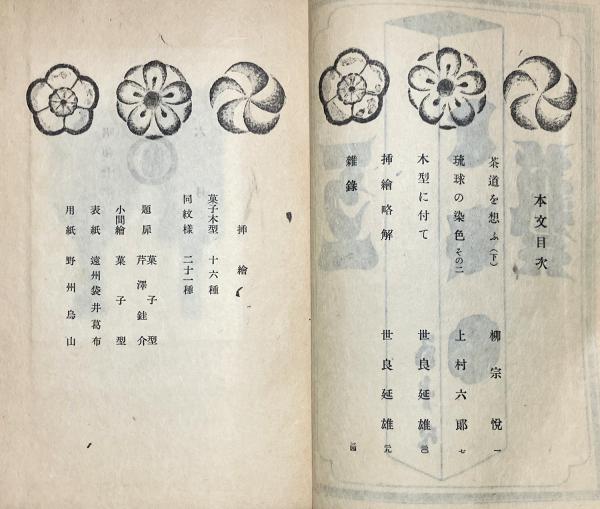 本文目次
茶道を想ふ(下) 柳宗悦 一
琉球の染色 その二 上村六郎 七
木型に付て 世良延雄
挿繪略解 世良延雄
雜錄
挿繪
菓子木型 十六種
同紋様 二十一種
題扉 菓子型 芹澤銈介
小間繪 菓子型
表紙 遠州袋井葛布
用紙 野州烏山